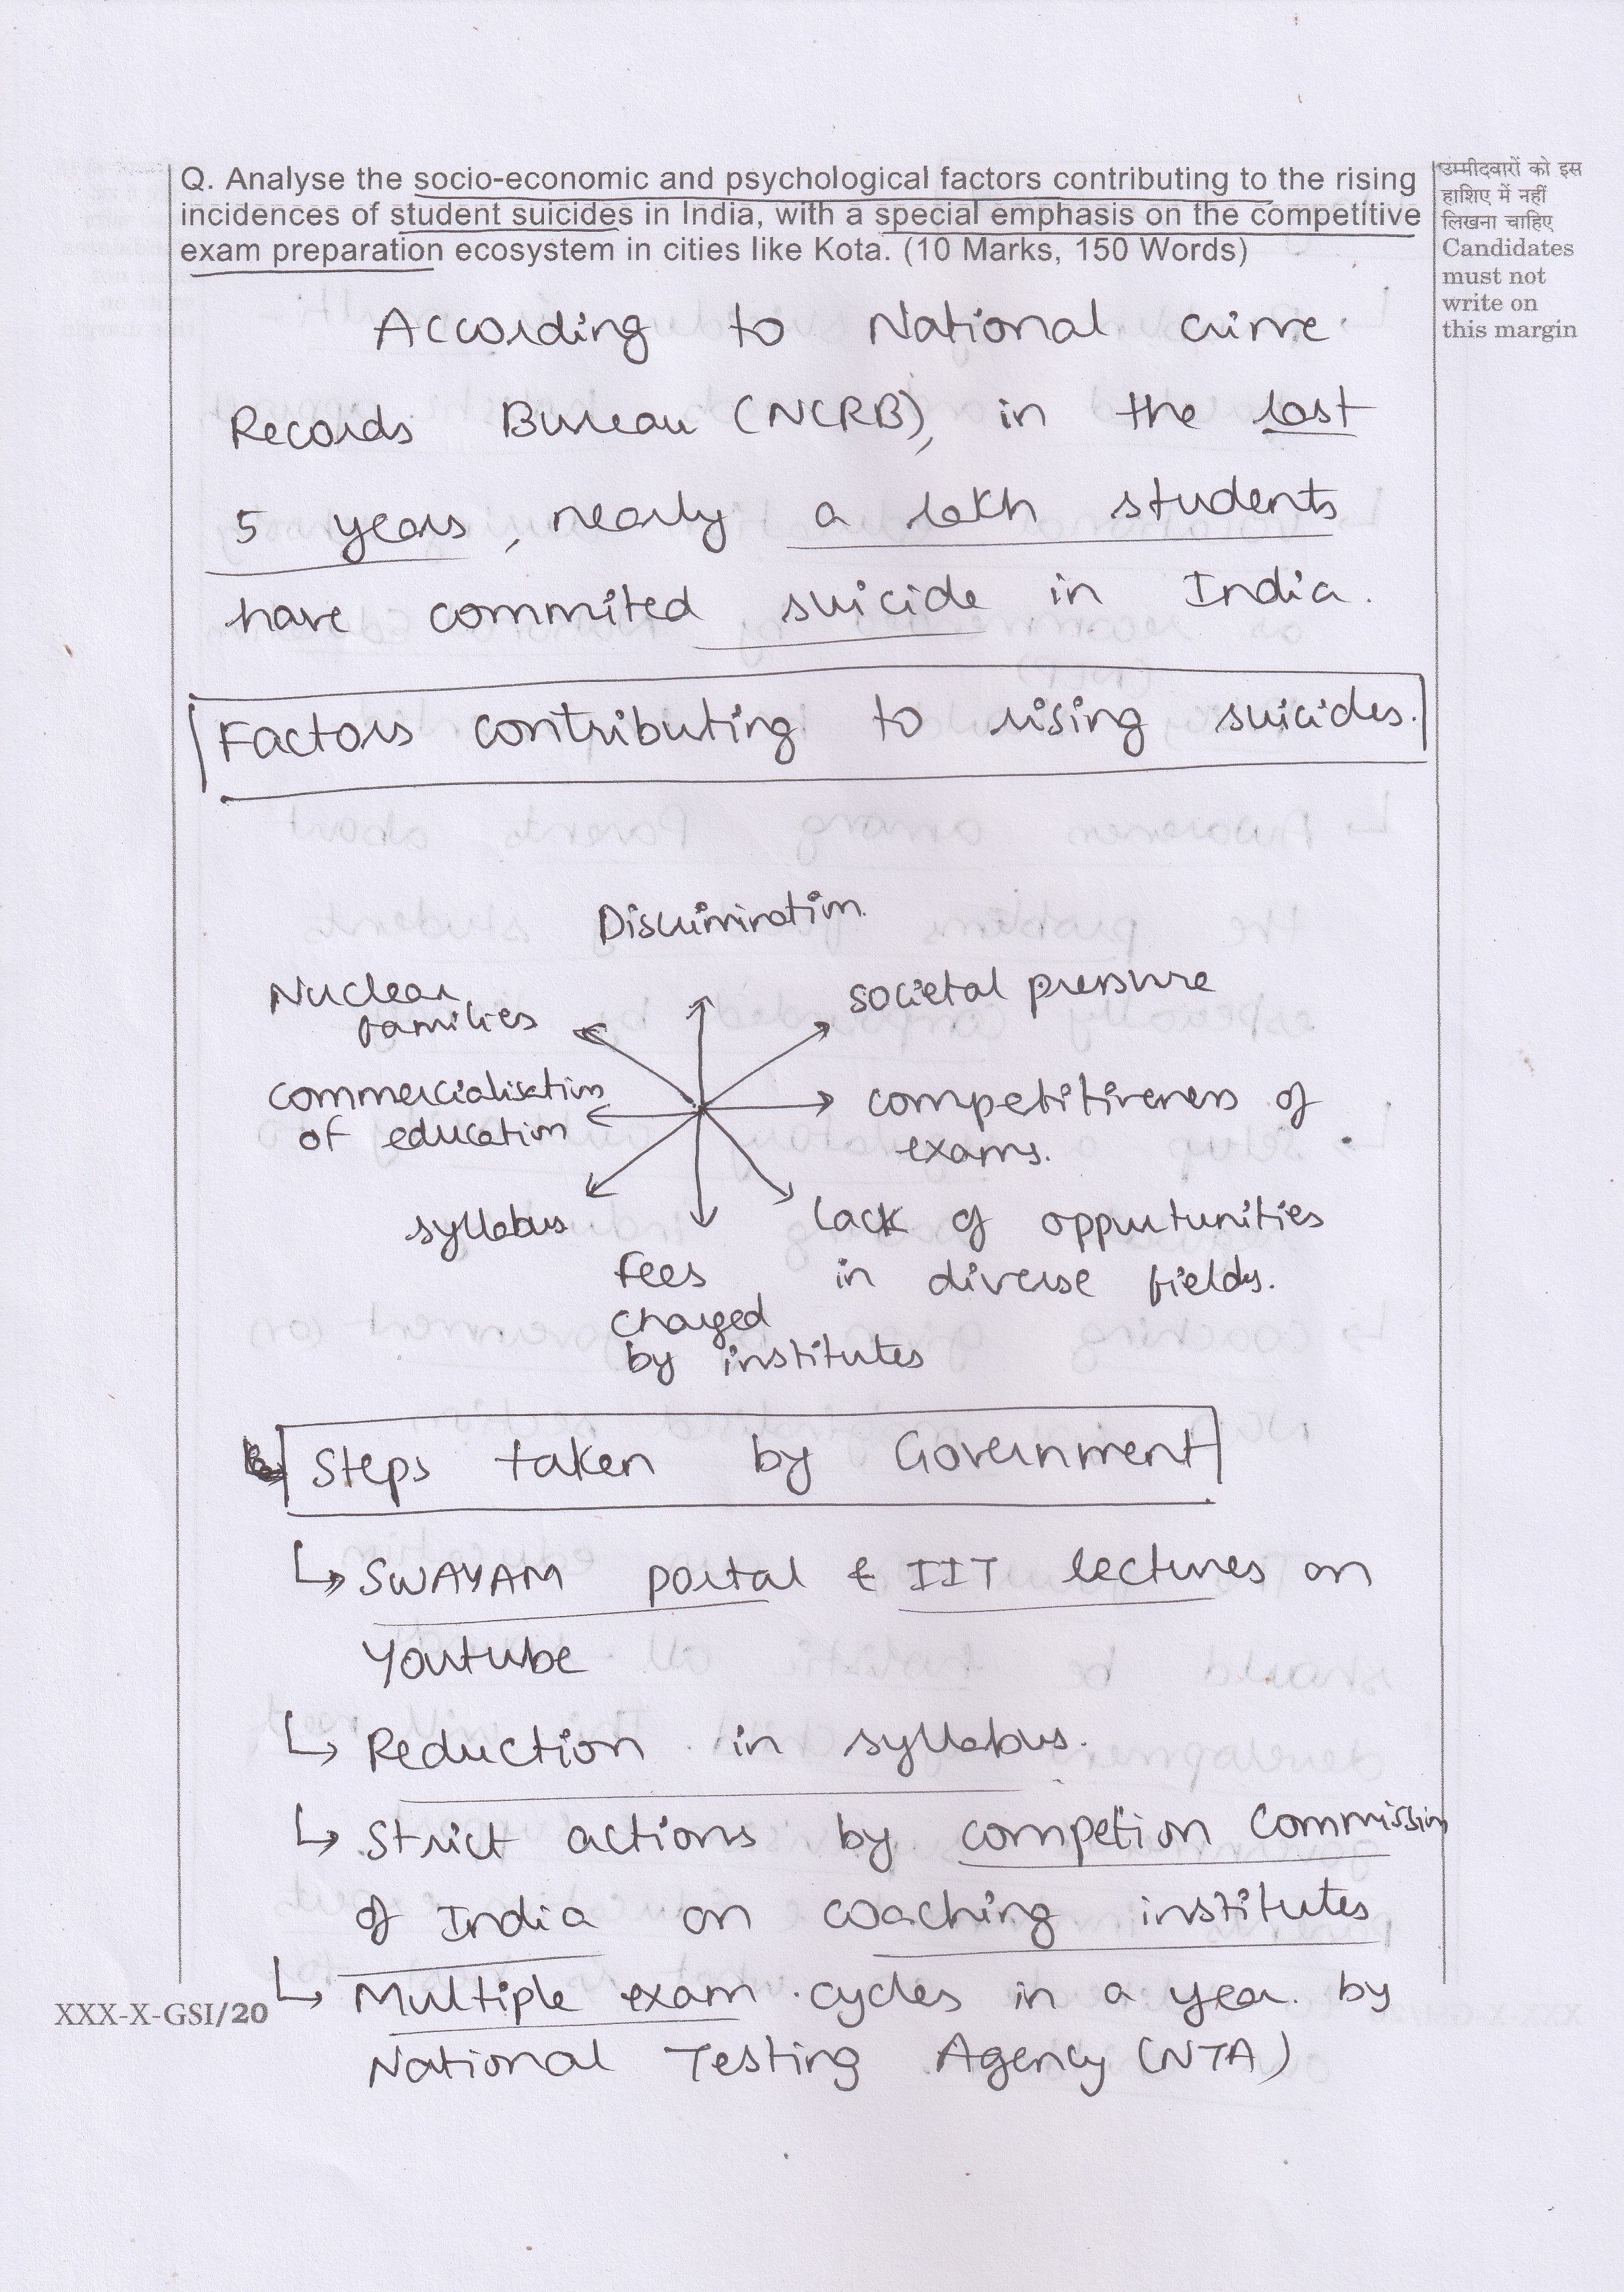 Q. Analyse the socio-economic and psychological factors contributing to the rising
incidences of student suicides in India, with a special emphasis on the competitive
exam preparation ecosystem in cities like Kota. (10 Marks, 150 Words)
उम्मीदवारों को इस
हाशिए में नहीं
लिखना चाहिए
Candidates
must not
write on
this margin
According to National crime
Records Bureau (NCRB), in the last
5 years, nearly a lakh students
have commited suicide in India.
Factors contributing to rising suicides.
Discrimination.
Nuclear
families
societal pressure
commercialisation
of education
competitiveness of
exams.
syllabus
lack of oppurtunities
in diverse fields.
Fees
charged
by institutes
Steps taken by Government
↳ SWAYAM portal & IIT lectures on
Youtube
↳ Reduction in syllabus.
↳ Strict actions by competion Commission
of India on coaching institutes
↳ Multiple exam cycles in a year by
National Testing Agency (NTA)
XXX-X-GSI/20